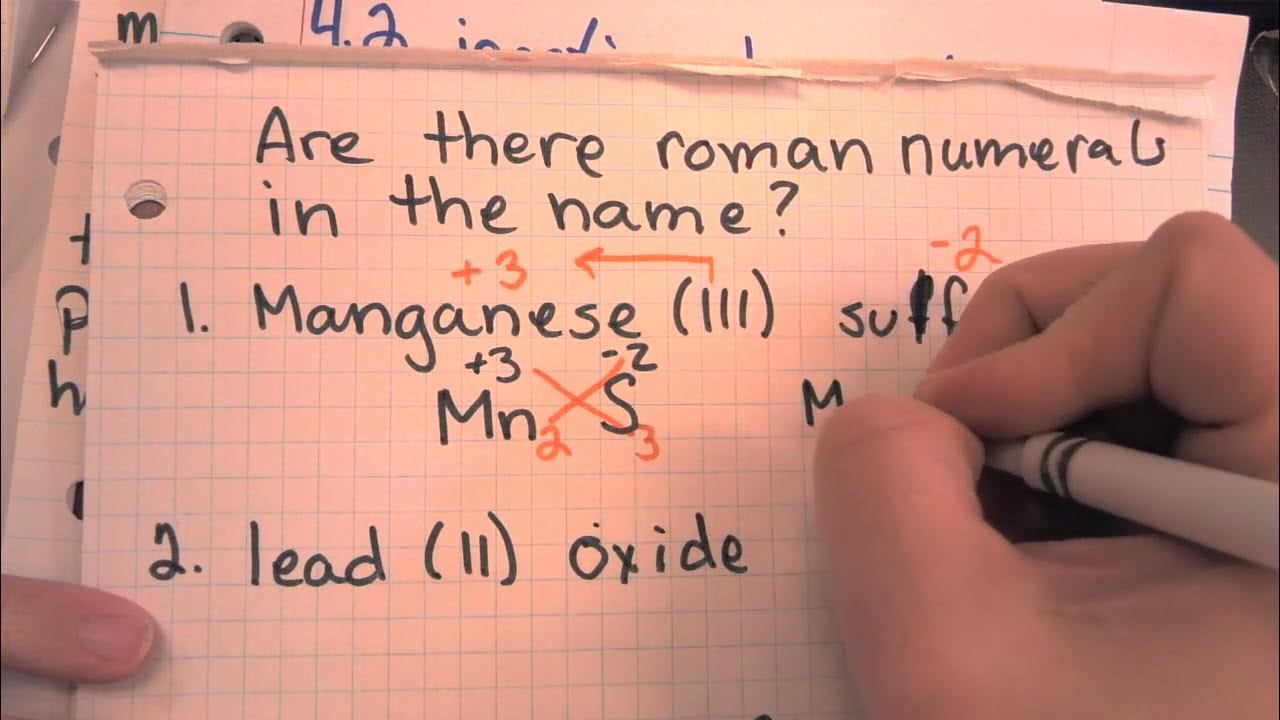 m
4.2
Are there roman numerals
in the name?
+3 -2
1. Manganese (III)
+3 -2
Mn2 S3 M
2. lead (II) oxide
t
p
h